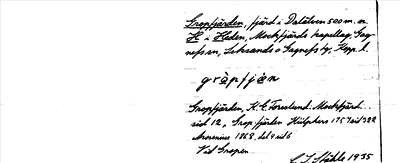 Gropfjärden, fjärd i Dalälven 500 m. n.
H i Heden, Mockfjärds kapellag, Gag-
nefs sn, Leksands o Gagnefs tg, Kopp. l.
grɑ̀pfjæ̀n
Gropfjärden, K. E. Forsslund Mockfjärd
sid 12, Grop-fjärden Hülphers 1757 sid 322
Arosenius 1868, del 4 sid 6
Vid Gropen
1935